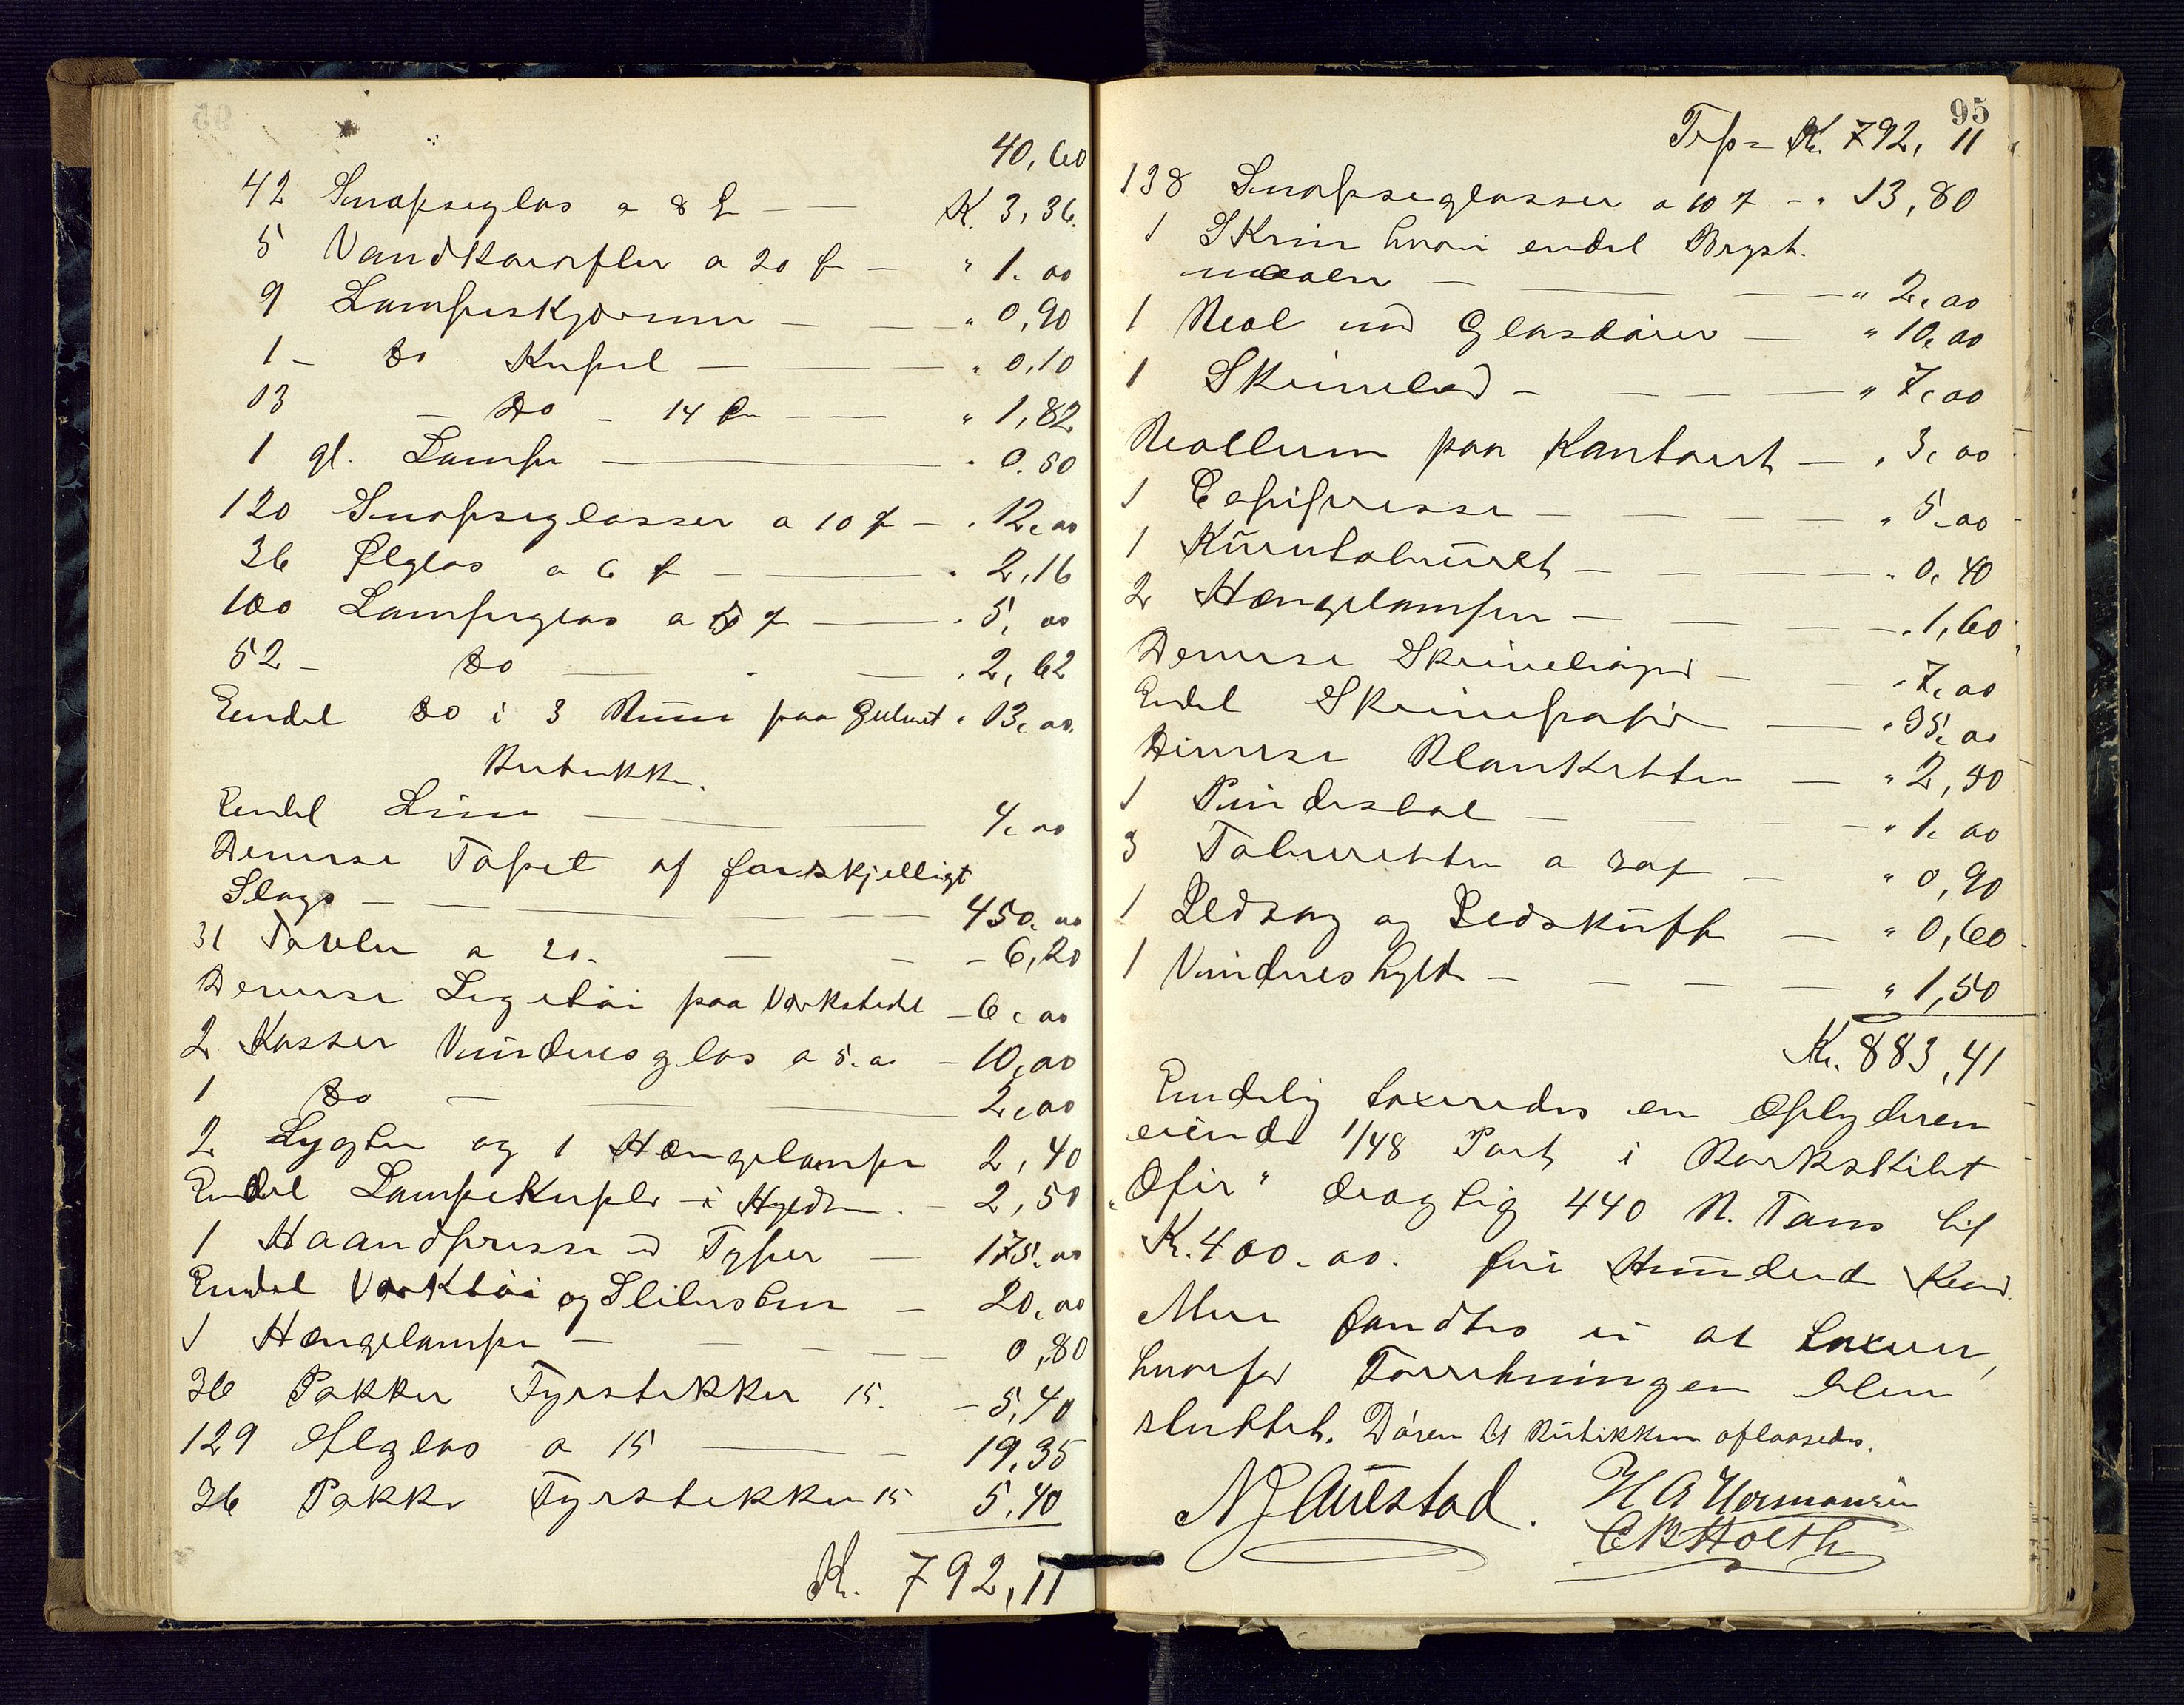 40,60
42 Snapseglas a 8 ø — K. 3,36.
5 Vandkarafler a 20 ø — " 1.00
9 Lampeskjærme — " 0,90
1 — do Kupel — " 0,10
13 — do — 14 ø — " 1,82
1 gl. Lampe — " 0.50
120 Snapseglasser a 10 ø — " 12,00
36 Ølglas a 6 ø — " 2,16
100 Lampeglas a 5 ø — " 5,00
52 — do — " 2,62
Endel do i 3 Rum paa Gulvet " 13,00
Butikken.
Endel Lim — 4,00
Deverse Tapet af forskjelligt
Slags — 450,00
31 Tavler a 20. — 6,20
Deverse Legetøi paa Værkstedet — 6,00
2 Kasser Vinduesglas a 5.00 — 10,00
1 do — 2,00
2 Lygter og 1 Hængelampe 2,40
Endel Lampekupler i Hylden. — 2,50
1 Haandpresse m Typer — 175.00
Endel Værktøi og Slibesten — 20,00
1 Hængelampe — 0,80
36 Pakker Fyrstikker 15. — 5,40
129 Ølglas a 15 — 19,35
36 Pakke Fyrstikker 15 5,40
Kr. 792,11
95
Trp = Kr. 792,11
138 Snapseglasser a 10 ø — " 13,80
1 Skrin hvori endel Bryst.
naaler — " 2,00
1 Reol med Glasdører — " 10,00
1 Skrivebord — " 7,00
Reollerne paa Kontoret — " 3,00
1 Copipresse — " 5,00
1 Kurvtaburet — " 0,40
2 Hængelamper — " 1,60
Deverse Skrivebøger — " 7,00
Endel Skrivepapir — " 35,00
Diverse Blanketter — " 2,50
1 Pindestol — " 1,00
3 Taburetter a 30 ø — " 0,90
1 Vedsag og Vedskuffe — " 0,60
1 Vindueshylde — " 1,50
Kr. 883,41
Endelig taxeredes en Aflyderen
eiende 1/48 Part i Barkskibet
"Ofir" drægtig 440 R. Tons til
K. 400.00. fire Hundrede Kroner.
Mere fandtes ei at taxere,
hvorfor Forretningen blev
sluttet. Døren til Butikken aflaasedes.
N J Auestad. H A Hermansen
C B Holth